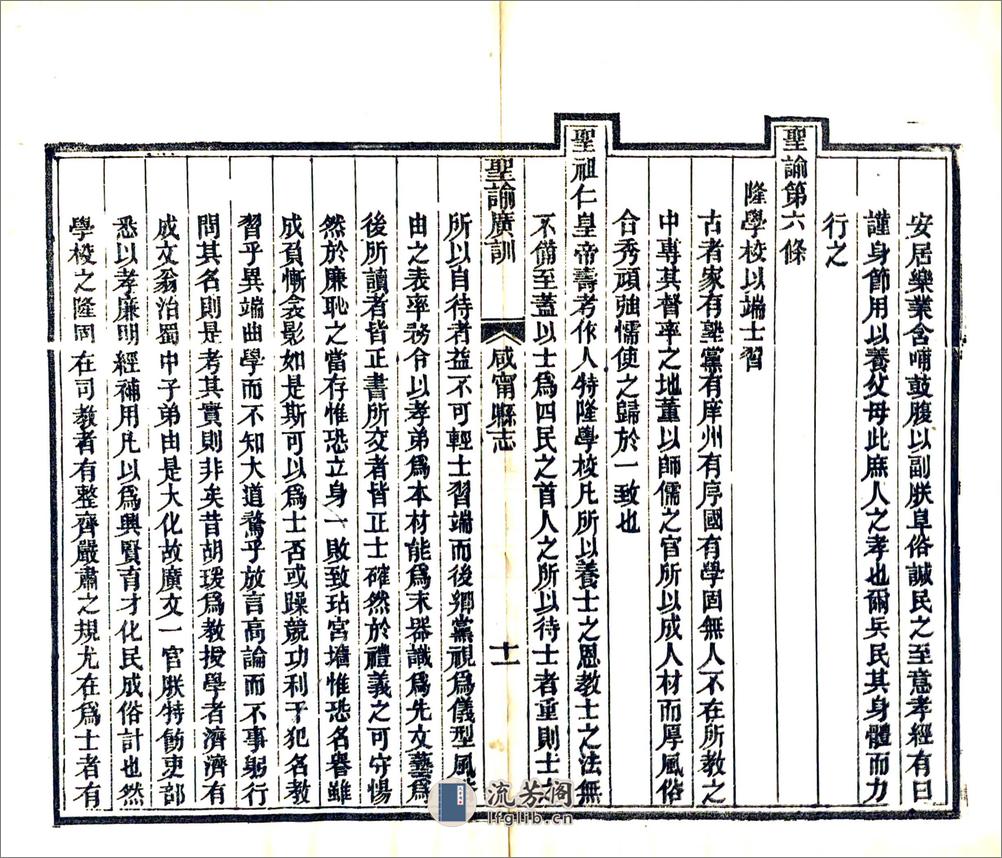 安居樂業含哺鼓腹以副朕阜俗諴民之至意孝經有曰
謹身節用以養父母此庶人之孝也爾兵民其身體而力
行之
聖諭第六條
隆學校以端士習
古者家有塾黨有庠州有序國有學固無人不在所教之
中專其督率之地董以師儒之官所以成人材而厚風俗
合秀頑強懦使之歸於一致也
聖祖仁皇帝壽考作人特隆學校凡所以養士之恩教士之法無
不備至蓋以士爲四民之首人之所以待士者重則士
聖諭廣訓
咸甯縣志
十一
所以自待者益不可輕士習端而後鄉黨視爲儀型風
由之表率務令以孝弟爲本材能爲末器識爲先文藝爲
後所讀者皆正書所交者皆正士確然於禮義之可守惕
然於廉恥之當存惟恐立身一敗致玷宮墻惟恐名譽雖
成負慚衾影如是斯可以爲士否或躁競功利干犯名教
習乎異端曲學而不知大道騖乎放言高論而不事躬行
問其名則是考其實則非矣昔胡瑗爲教授學者濟濟有
成文翁治蜀中子弟由是大化故廣文一官朕特飭吏部
悉以孝廉明經補用凡以爲興賢育才化民成俗計也然
學校之隆固在司教者有整齊嚴肅之規尤在爲士者有
流芳阁
lfglib.cn